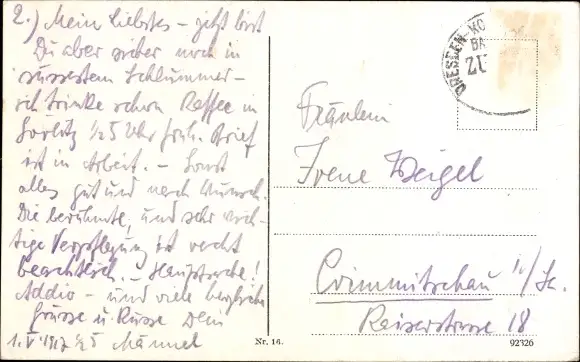 2.) Mein Liebstes – jetzt bist
Du aber sicher noch in
süssestem Schlummer –
ich trinke schon Kaffee in
Görlitz ½5 Uhr früh. Brief
ist in Arbeit. – Sonst
alles gut und nach Wunsch.
Die berühmte, und sehr wich-
tige Verpflegung ist recht
beachtlich. – Hauptsache!
Addio – und viele herzliche
Grüsse u. Küsse Dein
1. V 1917 ½5 Männel
DRESDEN-
BA
ZU
Fräulein
Irene Weigel
Crimmitschau i/Sa.
Kaiserstrasse 18
Nr. 16.
92326